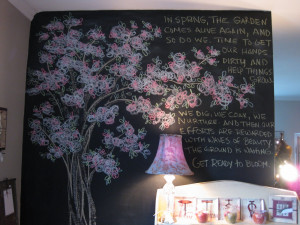 IN SPRING, THE GARDEN
COMES ALIVE AGAIN, AND
SO DO WE. TIME TO GET
OUR HANDS
DIRTY AND
HELP THINGS
GROW.
WE DIG, WE COAX, WE
NURTURE AND THEN OUR
EFFORTS ARE REWARDED
WITH WAVES OF BEAUTY.
THE GROUND IS WAKING.
GET READY TO BLOOM.